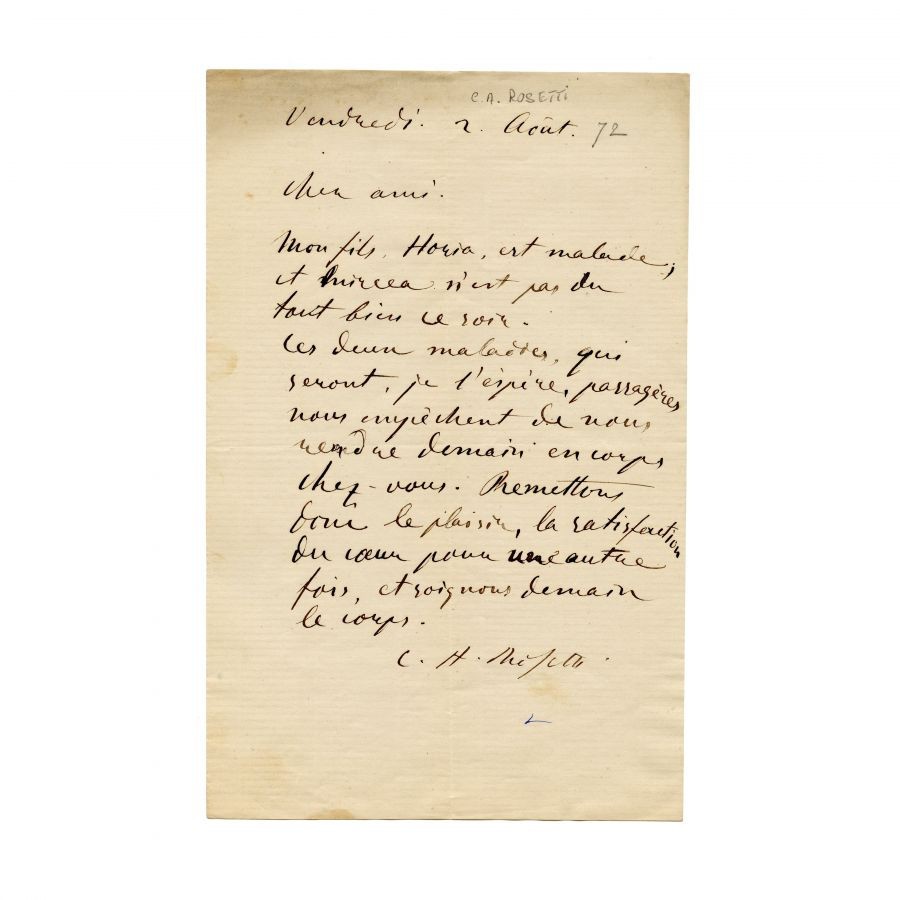 C. A. ROSETTI
Vendredi. 2. Août. 72
Cher ami.
Mon fils, Horia, est malade;
et Mircea n'est pas du
tout bien ce soir.
Ces deux maladies, qui
seront, je l'éspère, passagères
nous empêchent de nous
rendre demain en corps
chez-vous. Remettons
donc le plaisir, la satisfaction
du cœur pour une autre
fois, et soignons demain
le corps.
C. A. Rosetti.